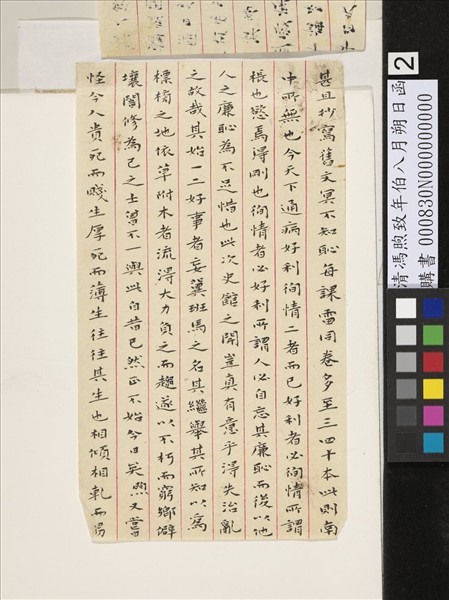 甚且抄寫舊文冥不知恥每課雷同卷多至三四十本此則南
中所無也今天下通病好利徇情二者而已好利者必徇情所謂
棖也慾焉得剛也徇情者必好利所謂人必自忘其廉恥而後以他
人之廉恥為不足惜也此次史館之開豈真有意乎得失治亂
之故哉其始一二好事者妄冀班馬之名其繼舉其所知以為
標榜之地依草附木者流得大力負之而趨遂以不朽而窮鄉僻
壤闇修為己之士曾不一與此自昔已然正不始今日矣煦又嘗
怪今人貴死而賤生厚死而薄生往往其生也相傾相軋而
清馮煦致年伯八月朔日函
購書 000830N000000000
2